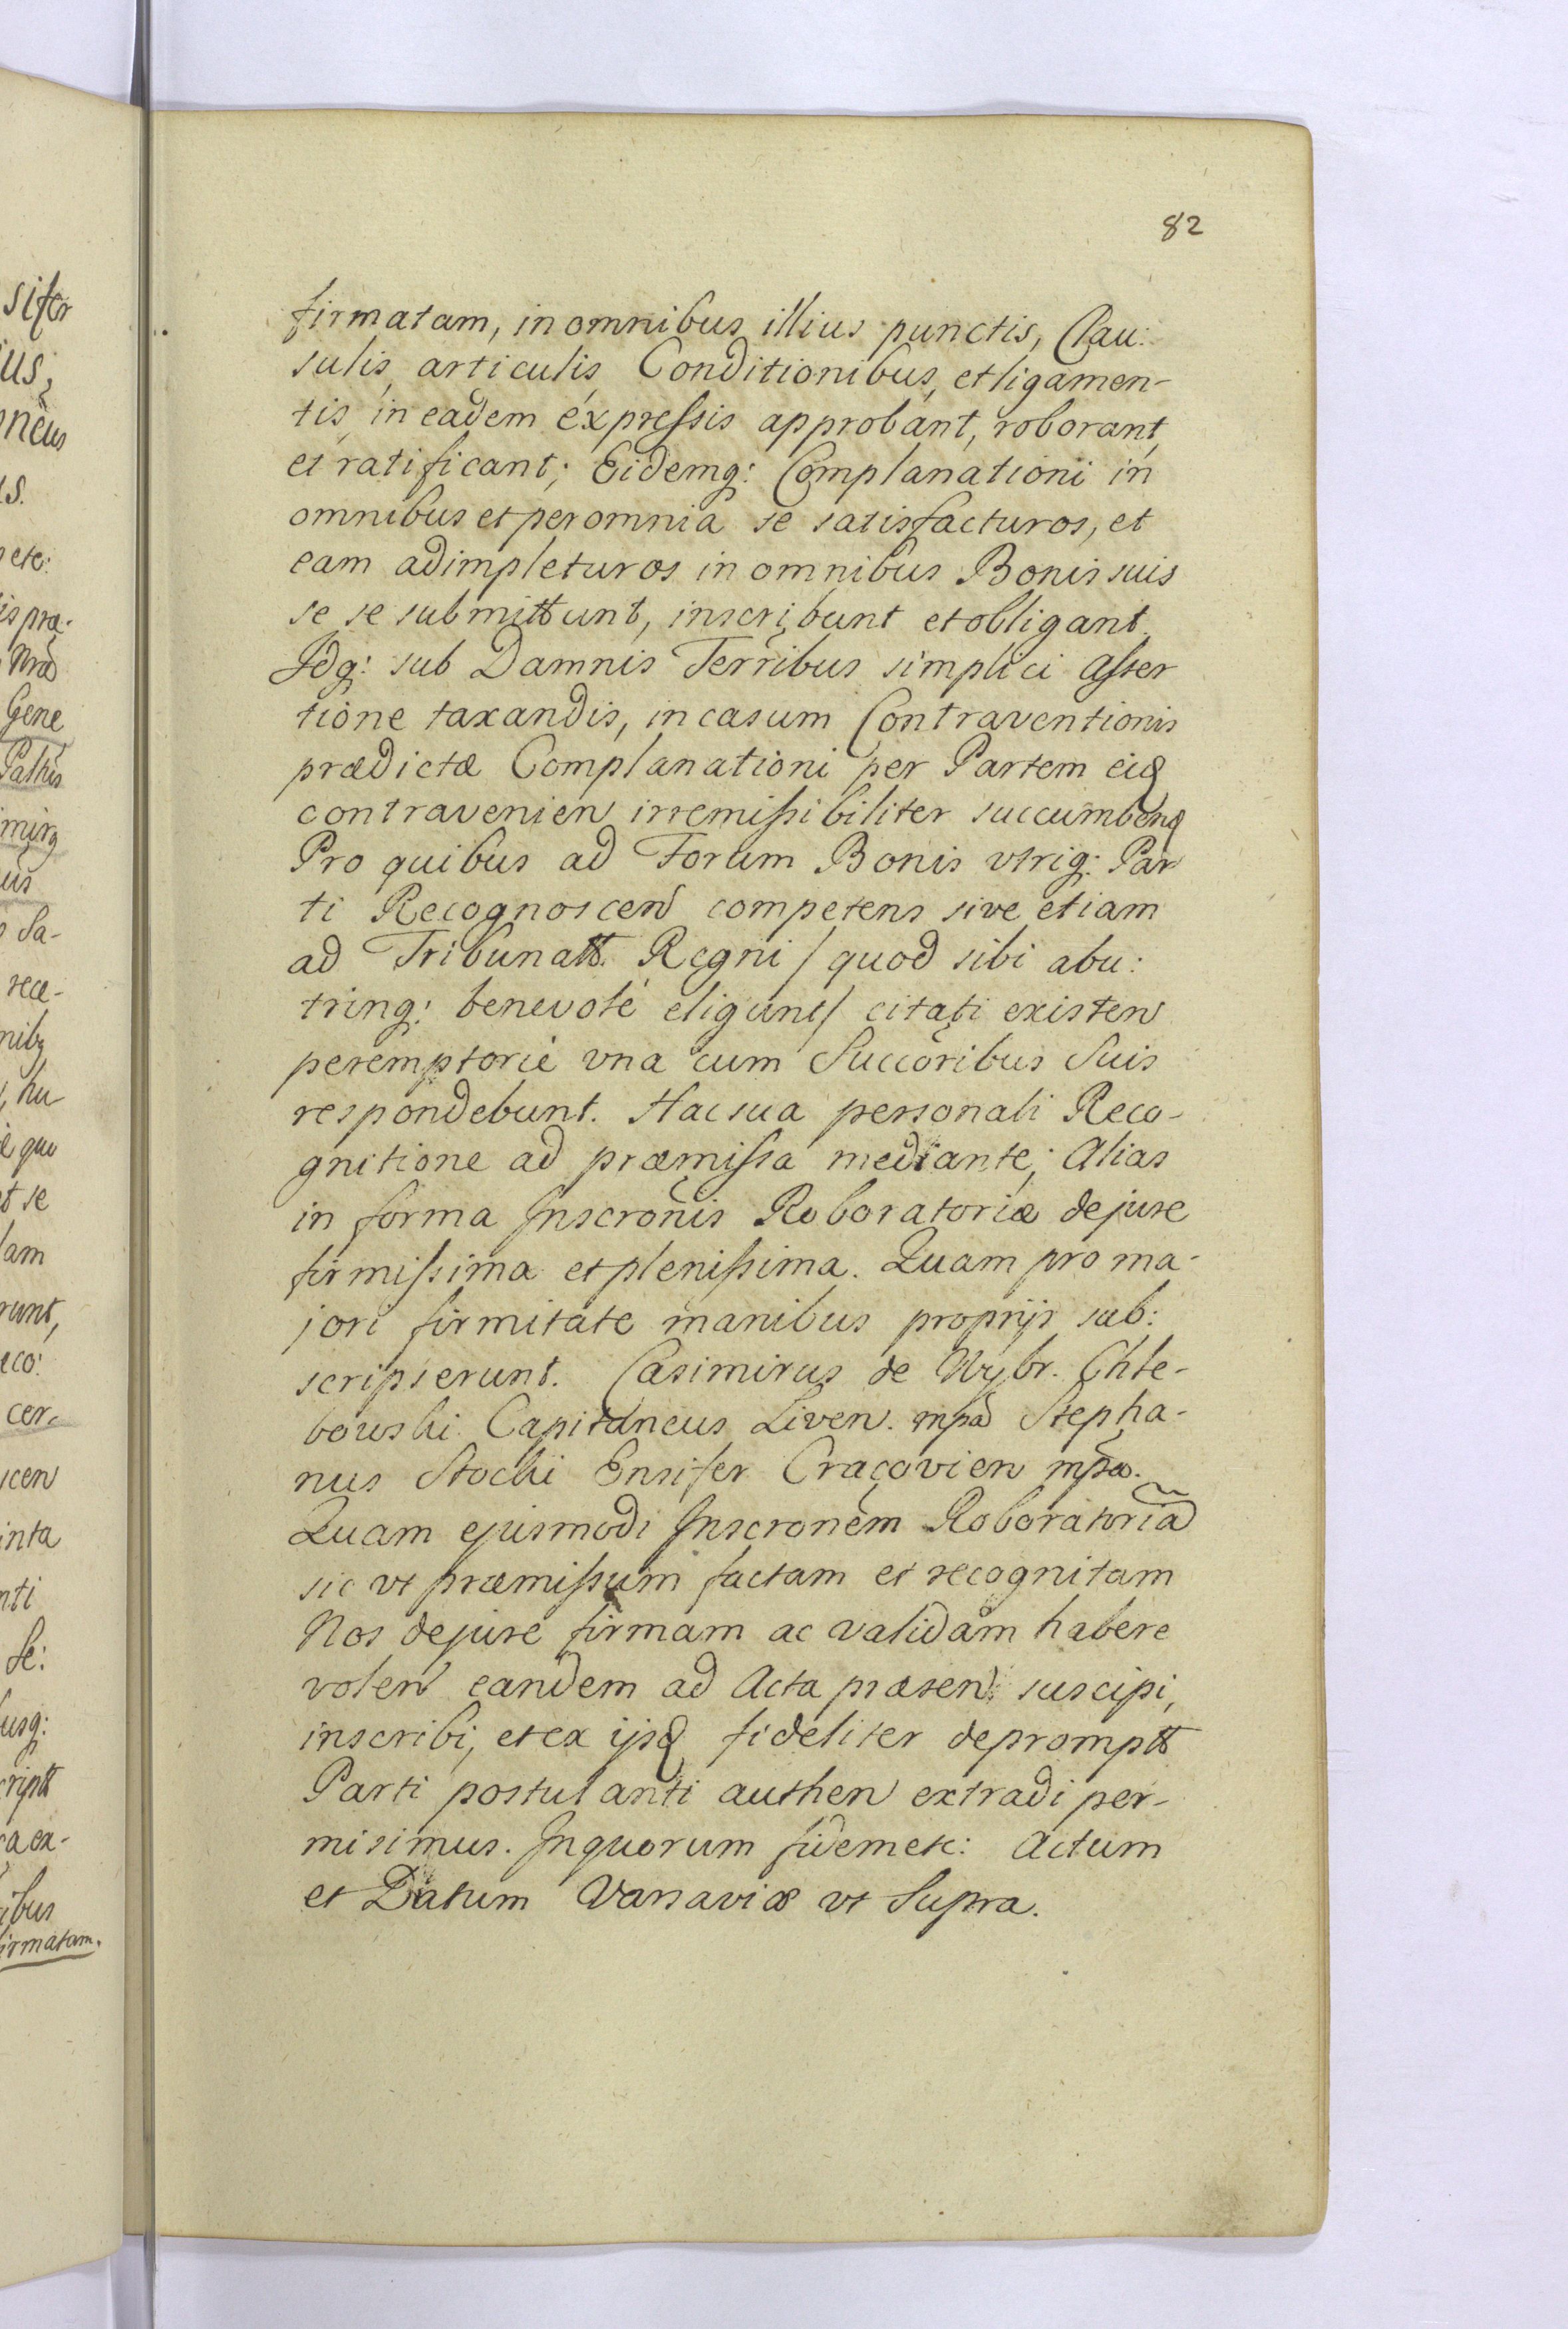 82
firmatam, in omnibus illius punctis, Clau:
sulis, articulis, Conditionibus, et ligamen-
tis, in eadem expressis approbant, roborant,
et ratificant; Eidemq: Complanationi in
omnibus et per omnia se satisfacturos, et
eam adimpleturos in omnibus Bonis suis
se se submittunt, inscribunt et obligant.
Idq: sub Damnis Terribus simplici asser
tione taxandis, in casum Contraventionis
prædictæ Complanationi per Partem ei
contravenien irremissibiliter succumben
Pro quibus ad Forum Bonis vtriq: Par
ti Recognoscen competens sive etiam
ad Tribunatt. Regni / quod sibi abu:
trinq: benevolé eligunt / citati existen
peremptorié vna cum Succoribus Suis
respondebunt. Hac sua personali Reco-
gnitione ad præmissa mediante; Alias
in forma Inscronis Roboratoriæ de jure
firmissima et plenissima. Quam pro ma-
jori firmitate manibus proprijs sub:
scripserunt. Casimirus de Wybr. Chle-
bowski Capitaneus Liven. mpa Stepha-
nus Stocki Ensifer Cracovien mpa.
Quam ejusmodi Inscronem Roboratoria
sic vt præmissum factam et recognitam
Nos de jure firmam ac validam habere
volen eandem ad Acta præsen suscipi,
inscribi, et ex ijsd fideliter depromptt
Parti postulanti authen extradi per-
misimus. In quorum fidem etc: Actum
et Datum Varsaviæ vt Supra.
sifer
ius,
neus
is.
etc:
is præ-
Gene
us
Sa-
rece-
hu
quo
t se
lam
runt,
eco:
cer-
scen
inta
nti
Se:
usq:
criptt
a ex-
ibus
firmatam.